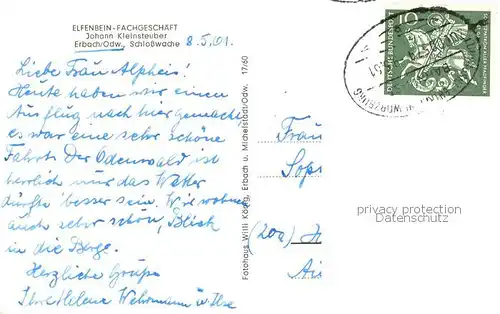 ELFENBEIN-FACHGESCHÄFT
Johann Kleinsteuber
Erbach/Odw., Schloßwache
8.5.61.
Liebe Frau Alpheis!
Heute haben wir einen
Ausflug nach hier gemacht,
es war eine sehr schöne
Fahrt. Der Odenwald ist
herrlich nur das Wetter
dürfte besser sein. Wir wohnen
auch sehr schön, Blick
in die Berge.
Herzliche Grüße
Ihre Helene Wehrmann u. Ilse
Fotohaus Willi König, Erbach u. Michelstadt/Odw. 17/60
10
DEUTSCHE BUNDESPOST
WÜRZBURG
Frau
Sop
(20a) H
privacy protection
Datenschutz